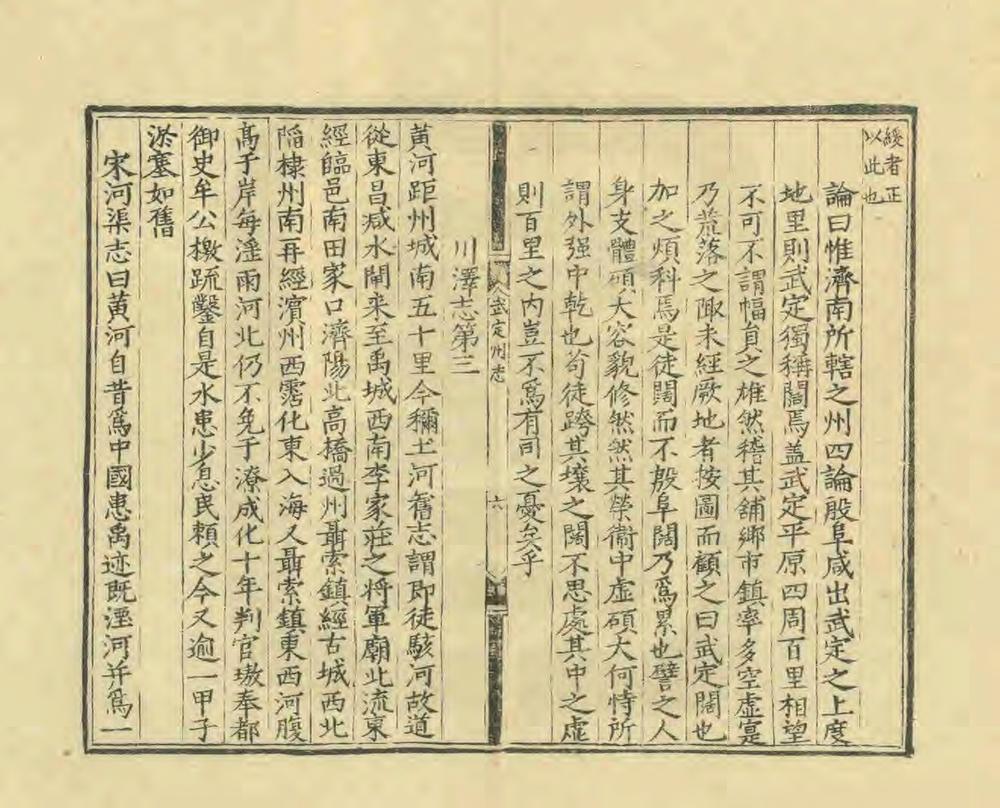 綏者正
以此也
論曰惟濟南所轄之州四論殷阜咸出武定之上度
地里則武定獨稱闊焉盖武定平原四周百里相望
不可不謂幅員之雄然稽其舖鄉市鎮率多空虛寔
乃荒落之陬未經厥地者按圖而顧之曰武定闊也
加之煩科焉是徒闊而不殷阜闊乃爲累也譬之人
身支體碩大容貌修然然其榮衞中虛碩大何恃所
謂外强中乾也苟徒跨其壤之闊不思處其中之虛
則百里之内豈不爲有司之憂矣乎
武定州志
六
川澤志第三
黄河距州城南五十里今稱土河舊志謂即徒駭河故道
從東昌减水閘来至禹城西南李家莊之将軍廟北流東
經臨邑南田家口濟陽北高橋過州聶索鎮經古城西北
陷棣州南再經濱州西霑化東入海又聶索鎮東西河腹
高于岸每滛雨河北仍不免于潦成化十年判官璈奉都
御史牟公檄疏鑿自是水患少息民頼之今又逾一甲子
淤塞如舊
宋河渠志曰黄河自昔爲中國患禹迹既湮河并爲一